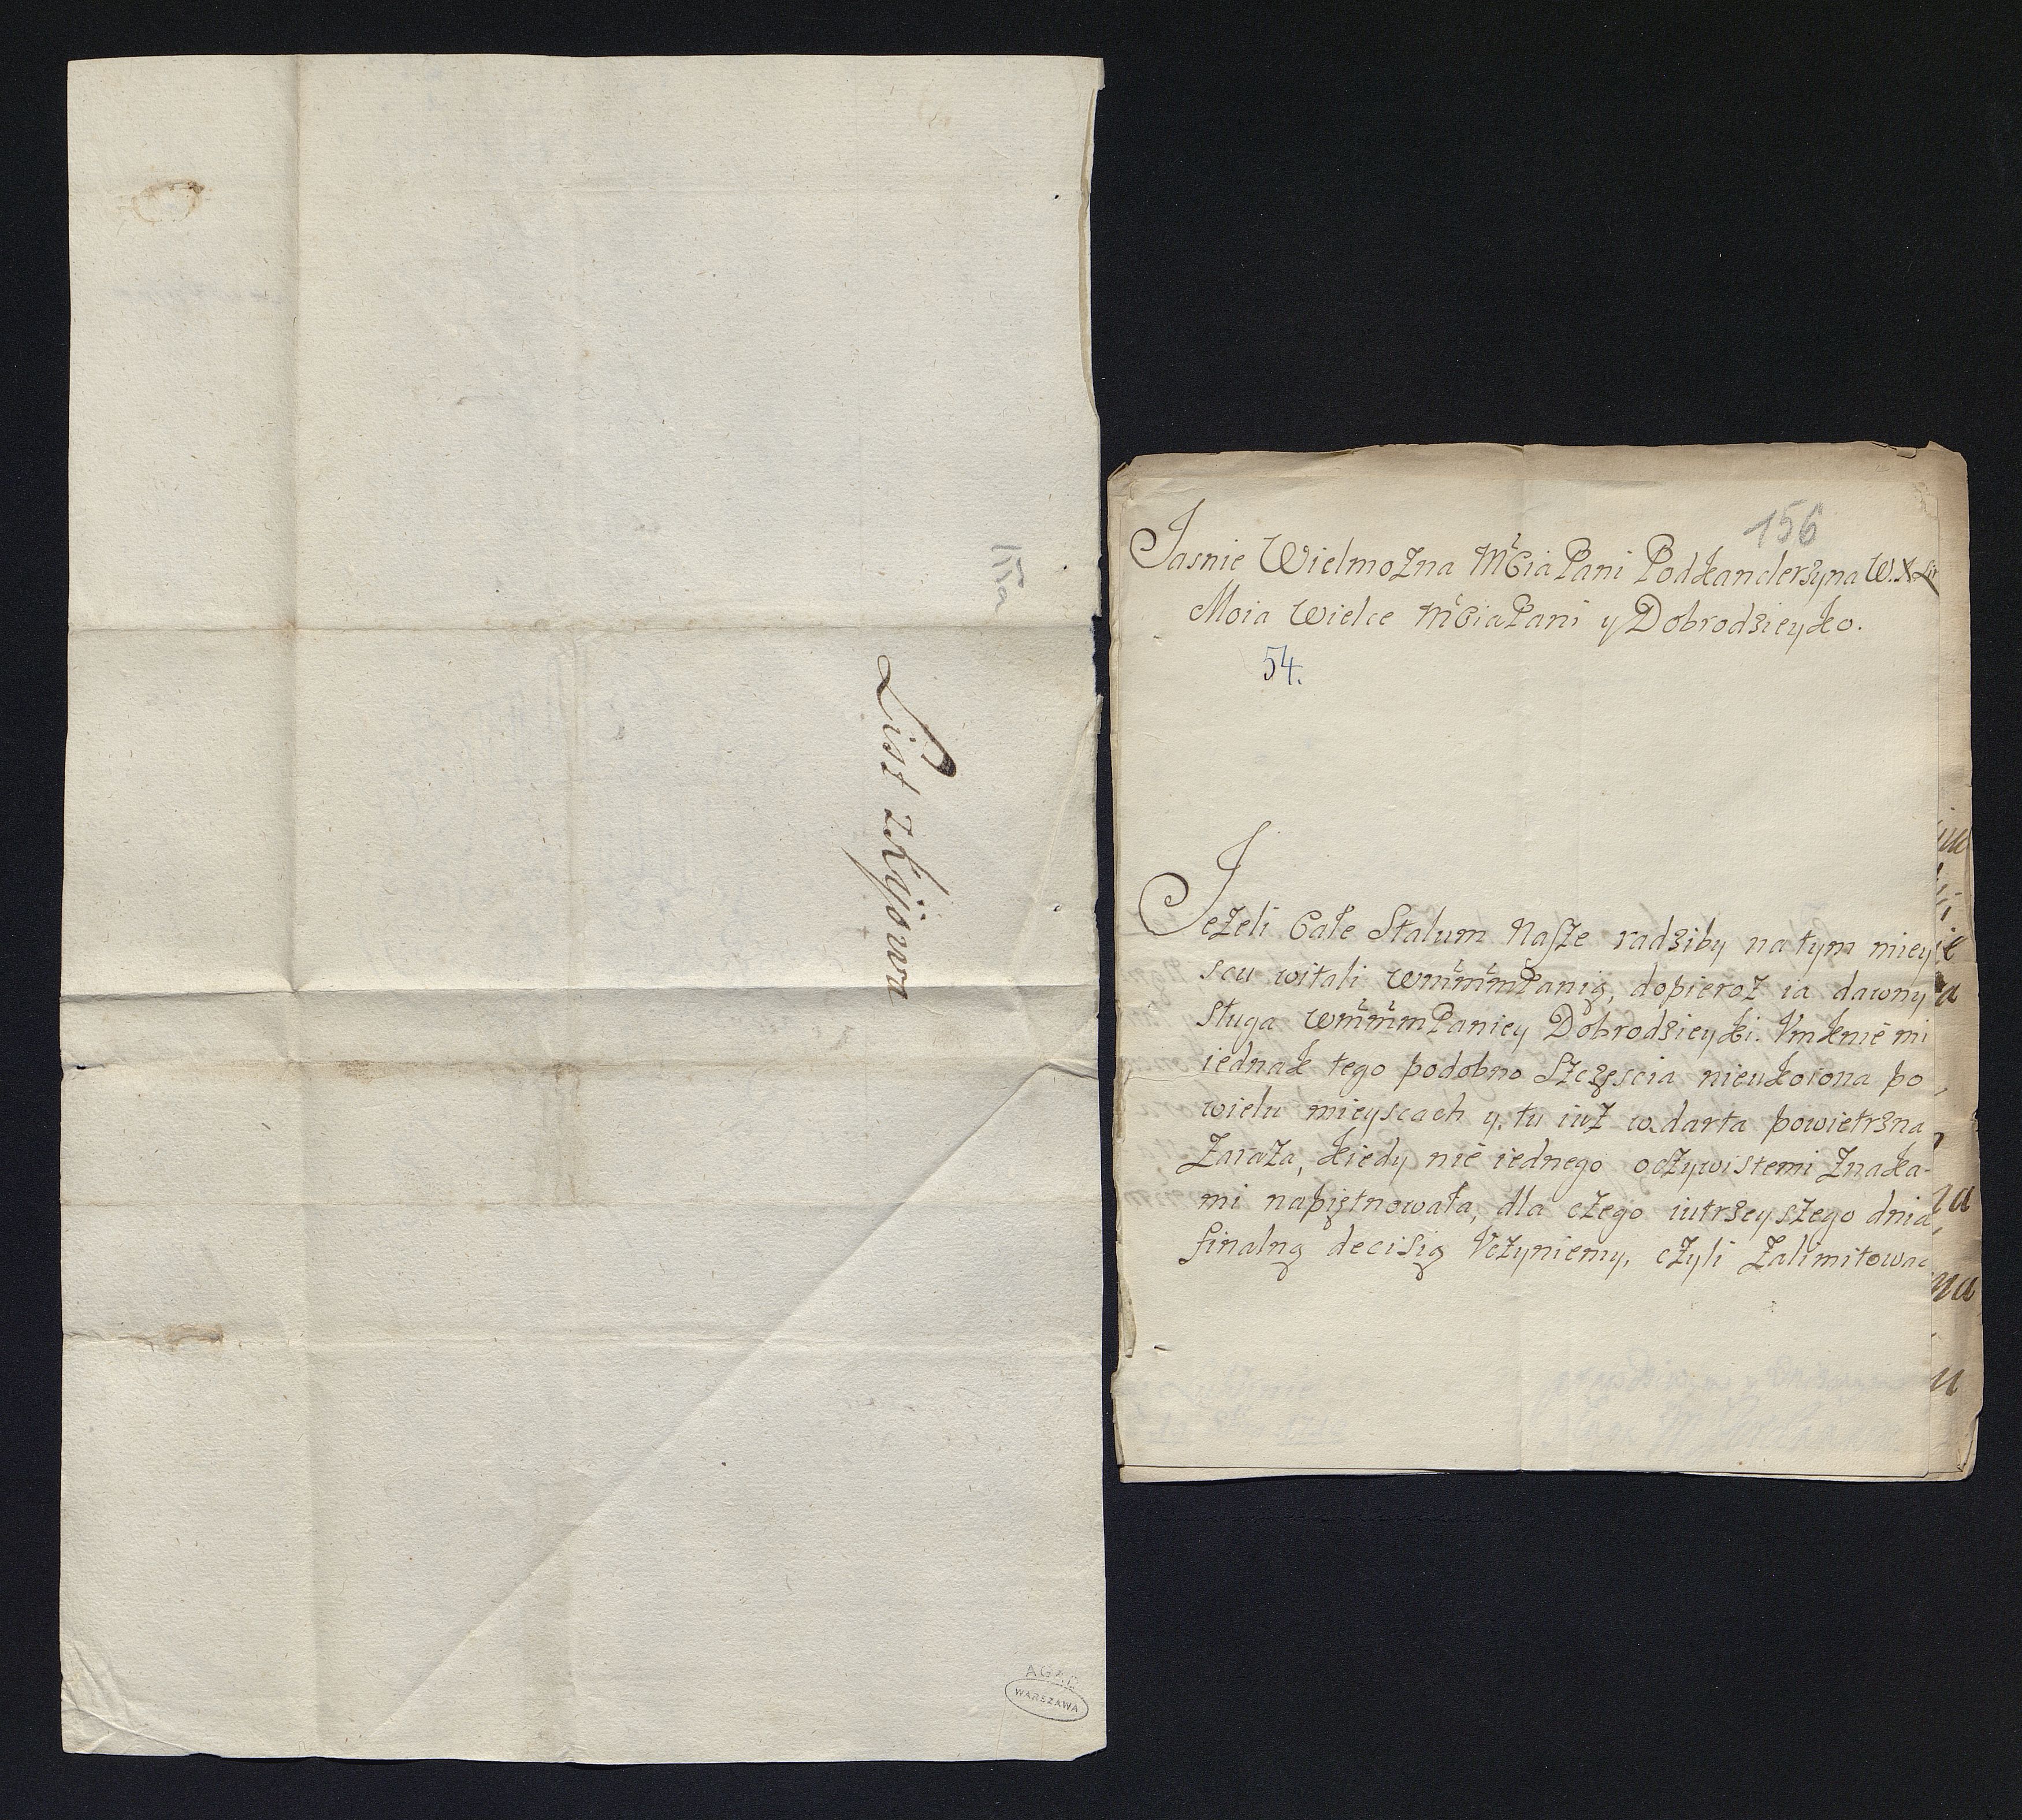 155a
List z Kijowa
AGAD
WARSZAWA
156
Jasnie Wielmożna MĆia Pani Podkanclerzyna W.X.Lit
Moia Wielce MĆiaPani y Dobrodzieyko.
54.
Jeżeli Całe Stalum Nasze radziby na tym miey
scu witali WmmmPanią, dopieroż ia dawny
sługa WmmmPaniey Dobrodzieyki. Vmknie mi
iednak tego podobno Szczęscia nieukoiona po
wielu mieyscach y tu iuż wdarta powietrzna
Zaraża, kiedy nie iednego oczywistemi Znaka-
mi napiętnowała, dla czego iutrzeyszego dnia
finalną decisią Vczyniemy, czyli Zalimitowac